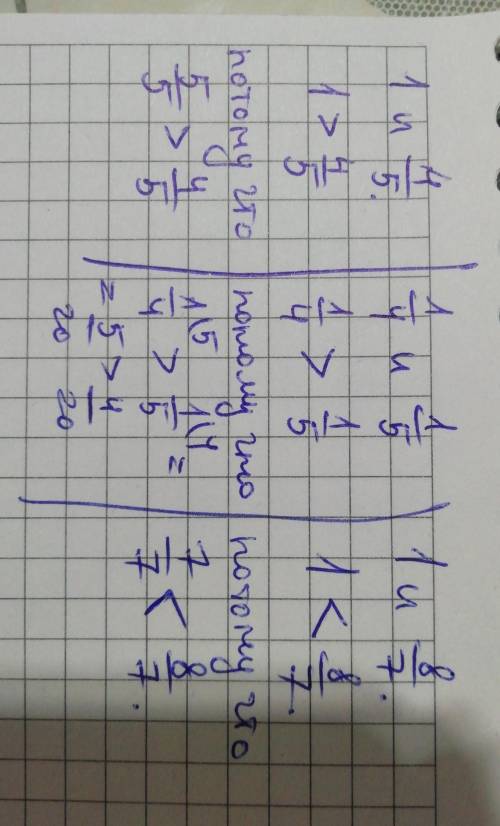 1 и 4/5.
1 > 4/5
потому что
5/5 > 4/5
1/4 и 1/5
1/4 > 1/5
потому что
1\5/4 > 1\4/5 =
= 5/20 > 4/20
1 и 8/7.
1 < 8/7.
потому что
7/7 < 8/7.